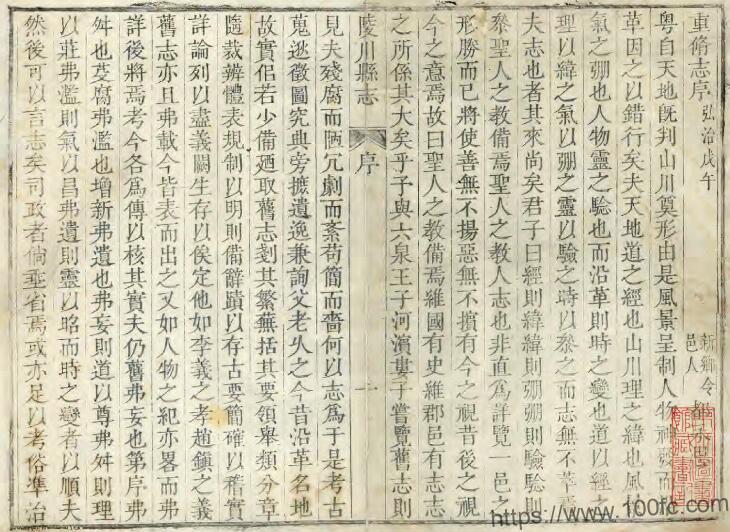 重脩志序 弘治戊午 新鄉令 邑人
粤自天地旣判山川奠形由是風景呈制人物
革因之以錯行矣夫天地道之經也山川理之緯也風
氣之弸也人物靈之驗也而沿革則時之變也道以經之
理以緯之氣以弸之靈以驗之時以叅之而志無不
夫志也者其來尚矣君子曰經則緯緯則弸弸則驗驗則
叅聖人之教備焉聖人之教人志也非直爲詳覽一邑之
形勝而已將使善無不揚惡無不擯有今之視昔後之視
今之意焉故曰聖人之教備焉維國有史維郡邑有志志
之所係其大矣乎予與六泉王子河濱婁子嘗覽舊志則
陵川縣志 序 一
見夫殘腐而陋冗劇而紊苟簡而嗇何以志爲于是考古
蒐逖徵圖究典旁摭遺逸兼詢父老乆之今昔沿革名地
故實侣若少備廼取舊志剗其繁蕪括其要領舉類分章
隨裁辨體表規制以明則備辭蹟以存古要簡確以稽實
詳論列以盡義闕生存以俟定他如李義之孝趙鎭之義
舊志亦且弗載今皆表而出之又如人物之紀亦畧而弗
詳後將焉考今各爲傳以核其實夫仍舊弗妄也第序弗
舛也芟腐弗濫也增新弗遺也弗妄則道以尊弗舛則理
以莊弗濫則氣以昌弗遺則靈以昭而時之變者以順夫
然後可以言志矣司政者倘垂省焉或亦足以考俗準治
https://www.100fc.com